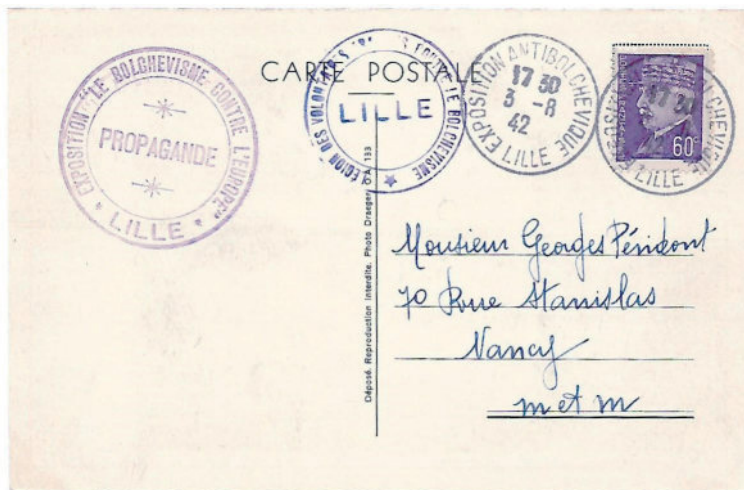 EXPOSITION "LE BOLCHEVISME CONTRE L'EUROPE"
PROPAGANDE
* LILLE *
CARTE POSTALE
LEGION DES VOLONTAIRES CONTRE LE BOLCHEVISME
LILLE
EXPOSITION ANTIBOLCHEVIQUE
17 30
3 -8
42
LILLE
60c
17 30
LILLE
Déposé. Reproduction Interdite. Photo Draeger. 133
Monsieur Georges
70 Rue Stanislas
Nancy
M et M